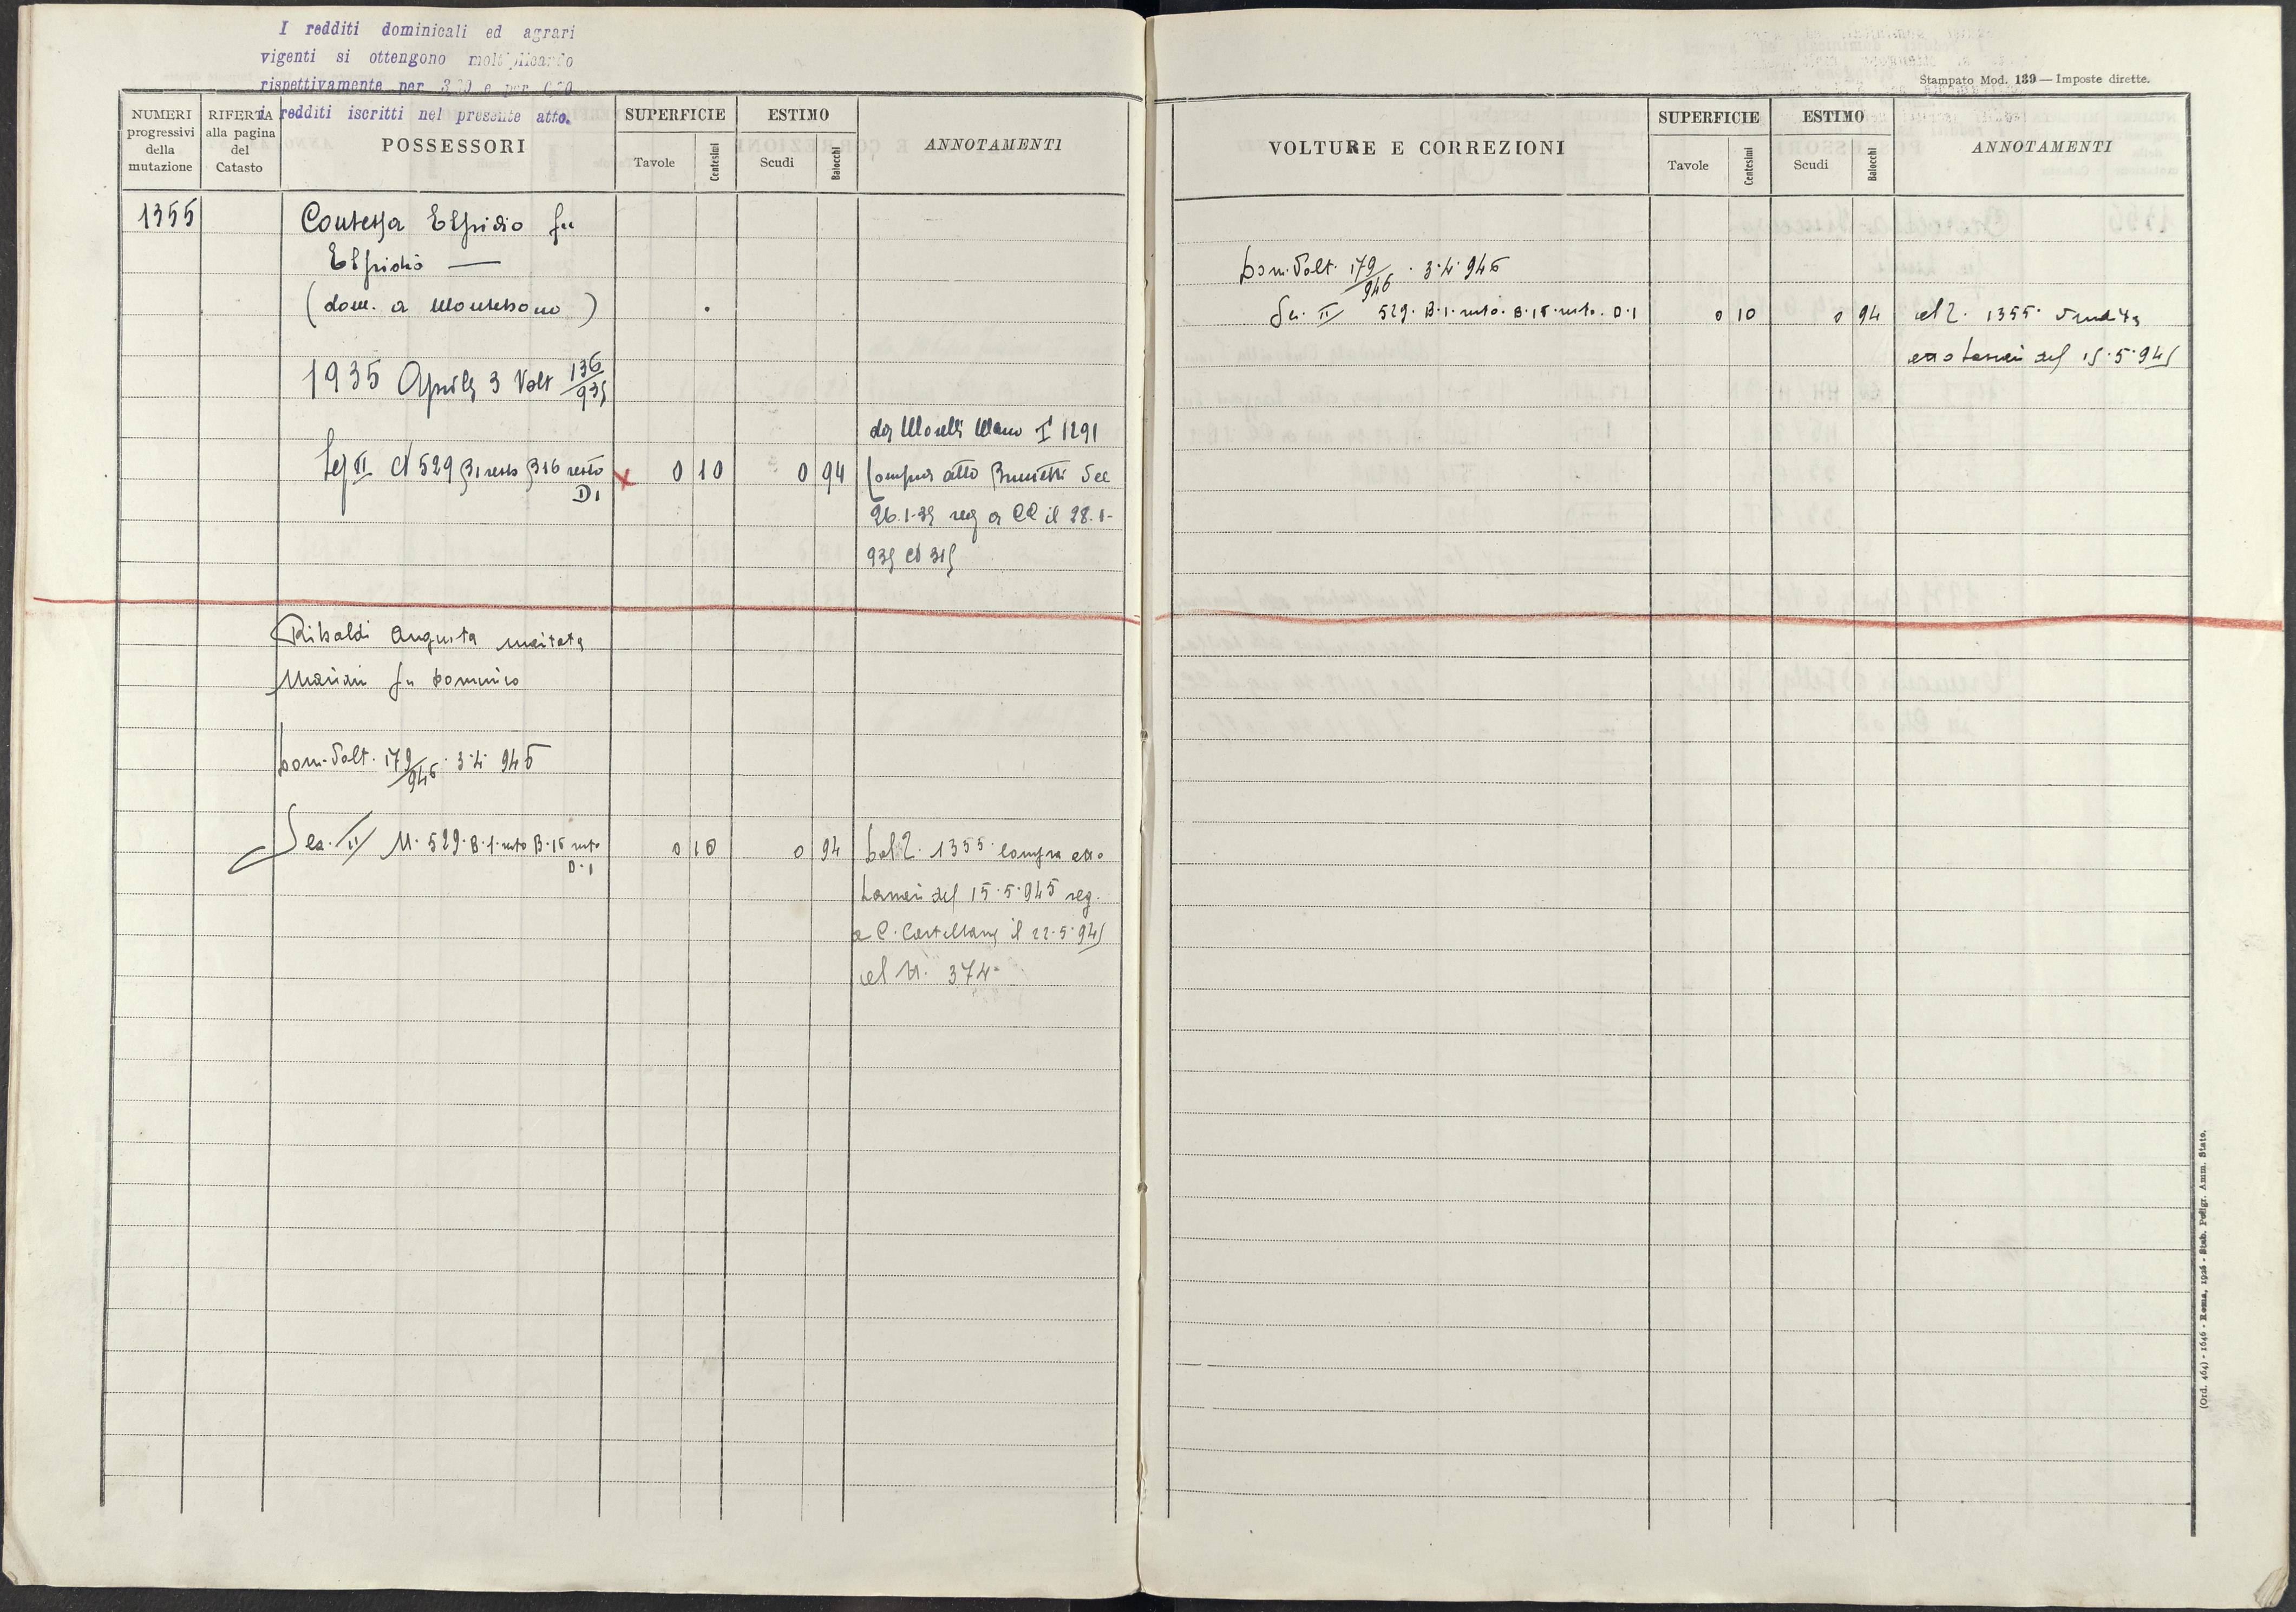 I redditi dominicali ed agrari
vigenti si ottengono moltiplicando
rispettivamente per 3,20 e per
i redditi iscritti nel presente atto.
NUMERI progressivi della mutazione
RIFERTA alla pagina del Catasto
POSSESSORI
SUPERFICIE
Tavole
Centesimi
ESTIMO
Scudi
Baiocchi
ANNOTAMENTI
1355
Contessa Elpidio fu
Elpidio —
(dom. a Montessono)
1935 Aprile 3 Volt 136/935
da Morelli I 1291
Sez II N 529 B1 resto B16 resto
D1
x 0 10 0 94
Compra atto Brunetti Sec
26.1.35 reg a CC il 28.1-
935 N 315
Ribaldi Augusta maritata
Mariani fu Domenico
Dom. Volt. 179/946 . 3.4.946
Sez. II N. 529. B.1. resto B.16 resto
D.1
0 10 0 94
Dal 2. 1355 compra atto
del 15.5.945 reg.
a C. Castellana il 22.5.945
al N. 374
Stampato Mod. 139 — Imposte dirette.
VOLTURE E CORREZIONI
SUPERFICIE
Tavole
Centesimi
ESTIMO
Scudi
Baiocchi
ANNOTAMENTI
Dom. Volt. 179/946 . 3.4.946
Sez. II 529. B.1. resto. B.16. resto. D.1
0 10 0 94
al 2. 1355. vendita
atto del 15.5.945
(Ord. 464) - 1646 - Roma, 1926 - Stab. Poligr. Amm. Stato.